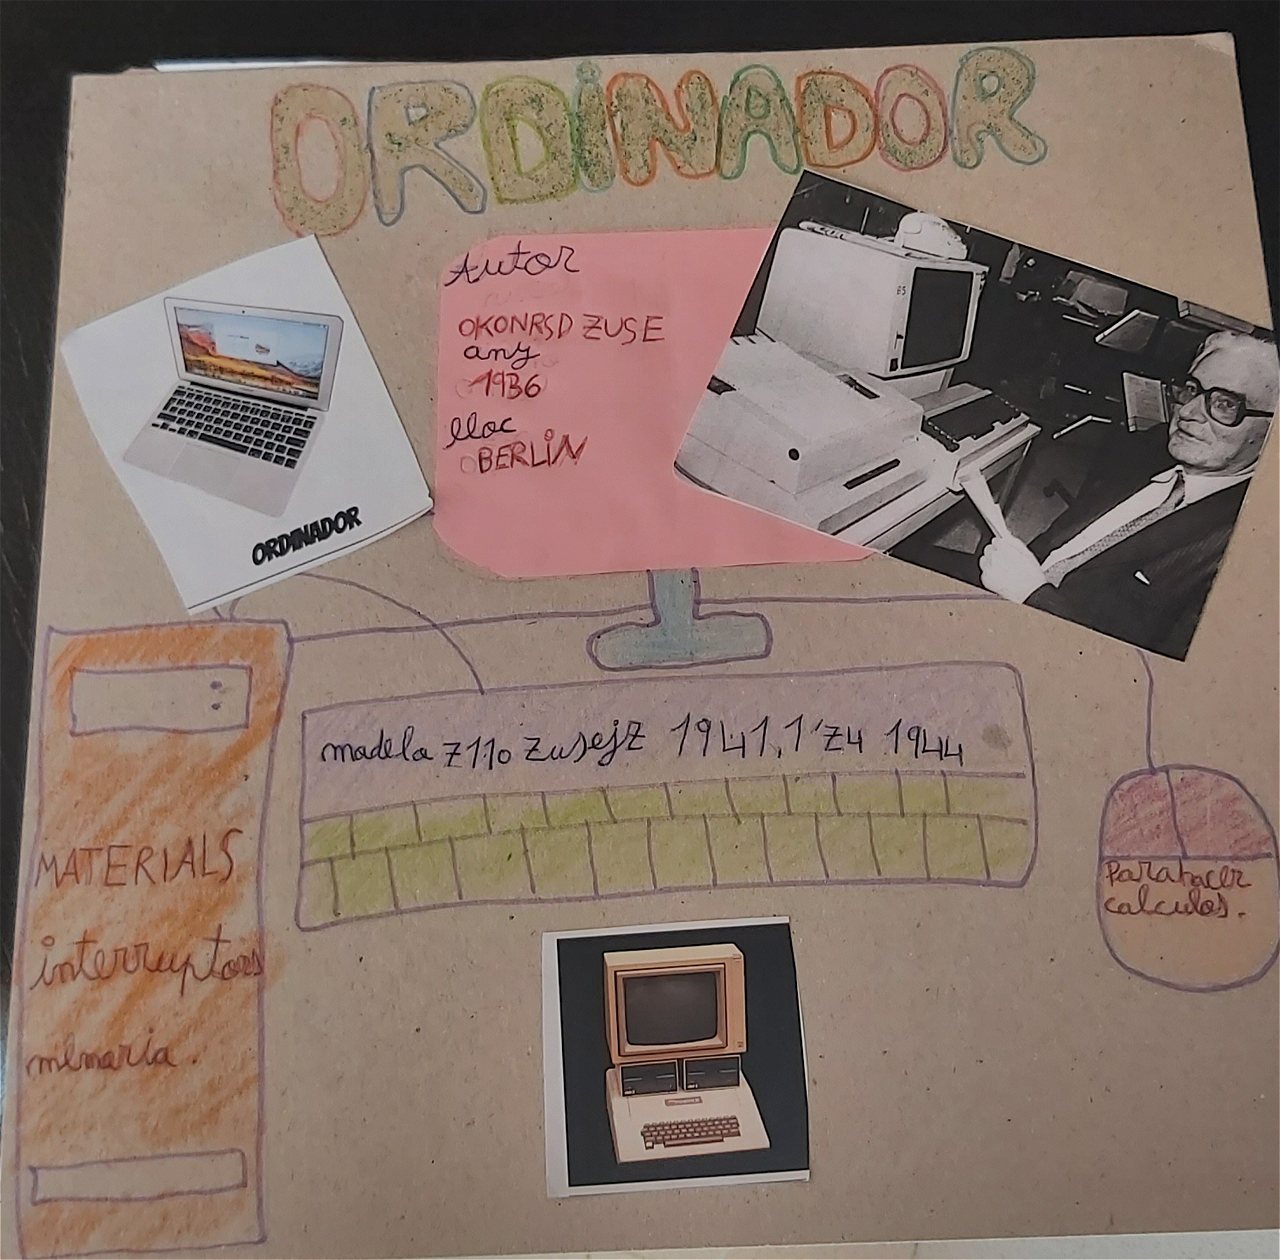 ORDINADOR
Autor
OKONRSD ZUSE
any
1936
lloc
BERLIN
ORDINADOR
B5
madela Z11o Zusejz 1941,1'Z4 1944
MATERIALS
interruptors
memoria.
Para hacer
calculos.